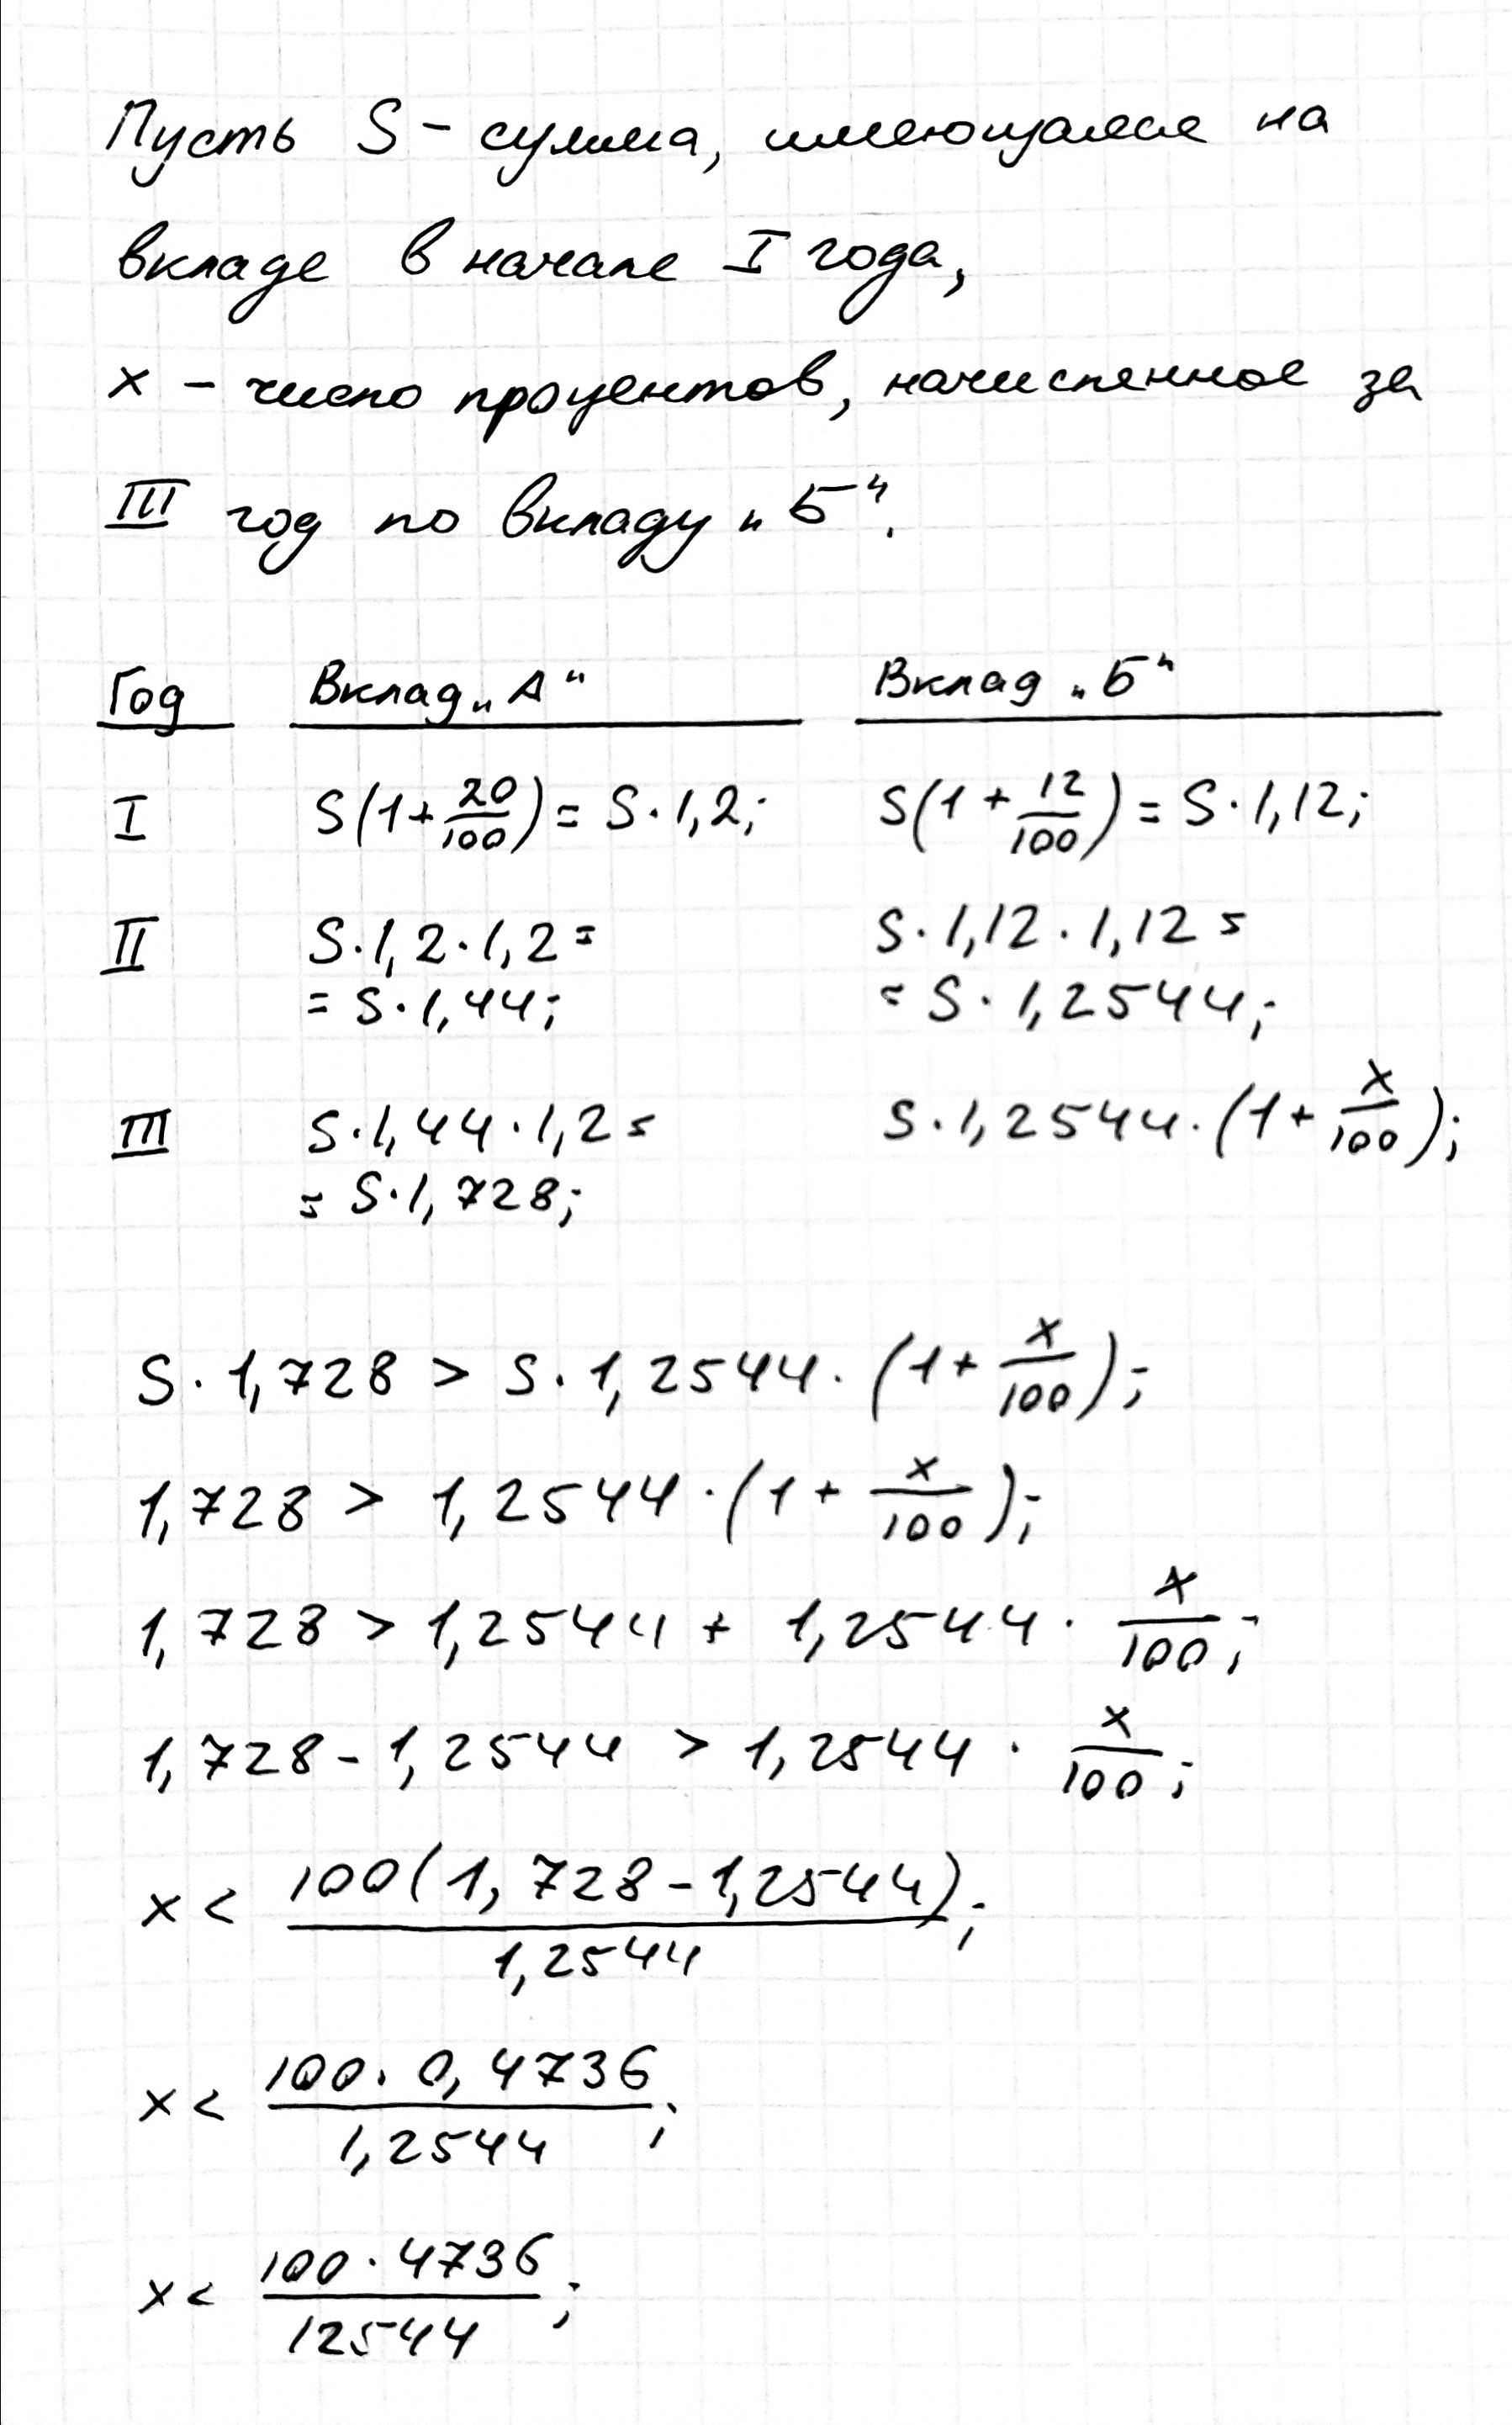 Пусть S - сумма, имеющаяся на
вкладе в начале I года,
x - число процентов, начисленное за
III год по вкладу „Б“.
Год Вклад „А“ Вклад „Б“
I S(1+20/100) = S·1,2; S(1+12/100) = S·1,12;
II S·1,2·1,2= S·1,12·1,12=
= S·1,44; = S·1,2544;
III S·1,44·1,2= S·1,2544·(1+x/100);
= S·1,728;
S·1,728 > S·1,2544·(1+x/100);
1,728 > 1,2544·(1+x/100);
1,728 > 1,2544 + 1,2544·x/100;
1,728 - 1,2544 > 1,2544·x/100;
x < 100(1,728-1,2544)/1,2544;
x < 100·0,4736/1,2544;
x < 100·4736/12544;